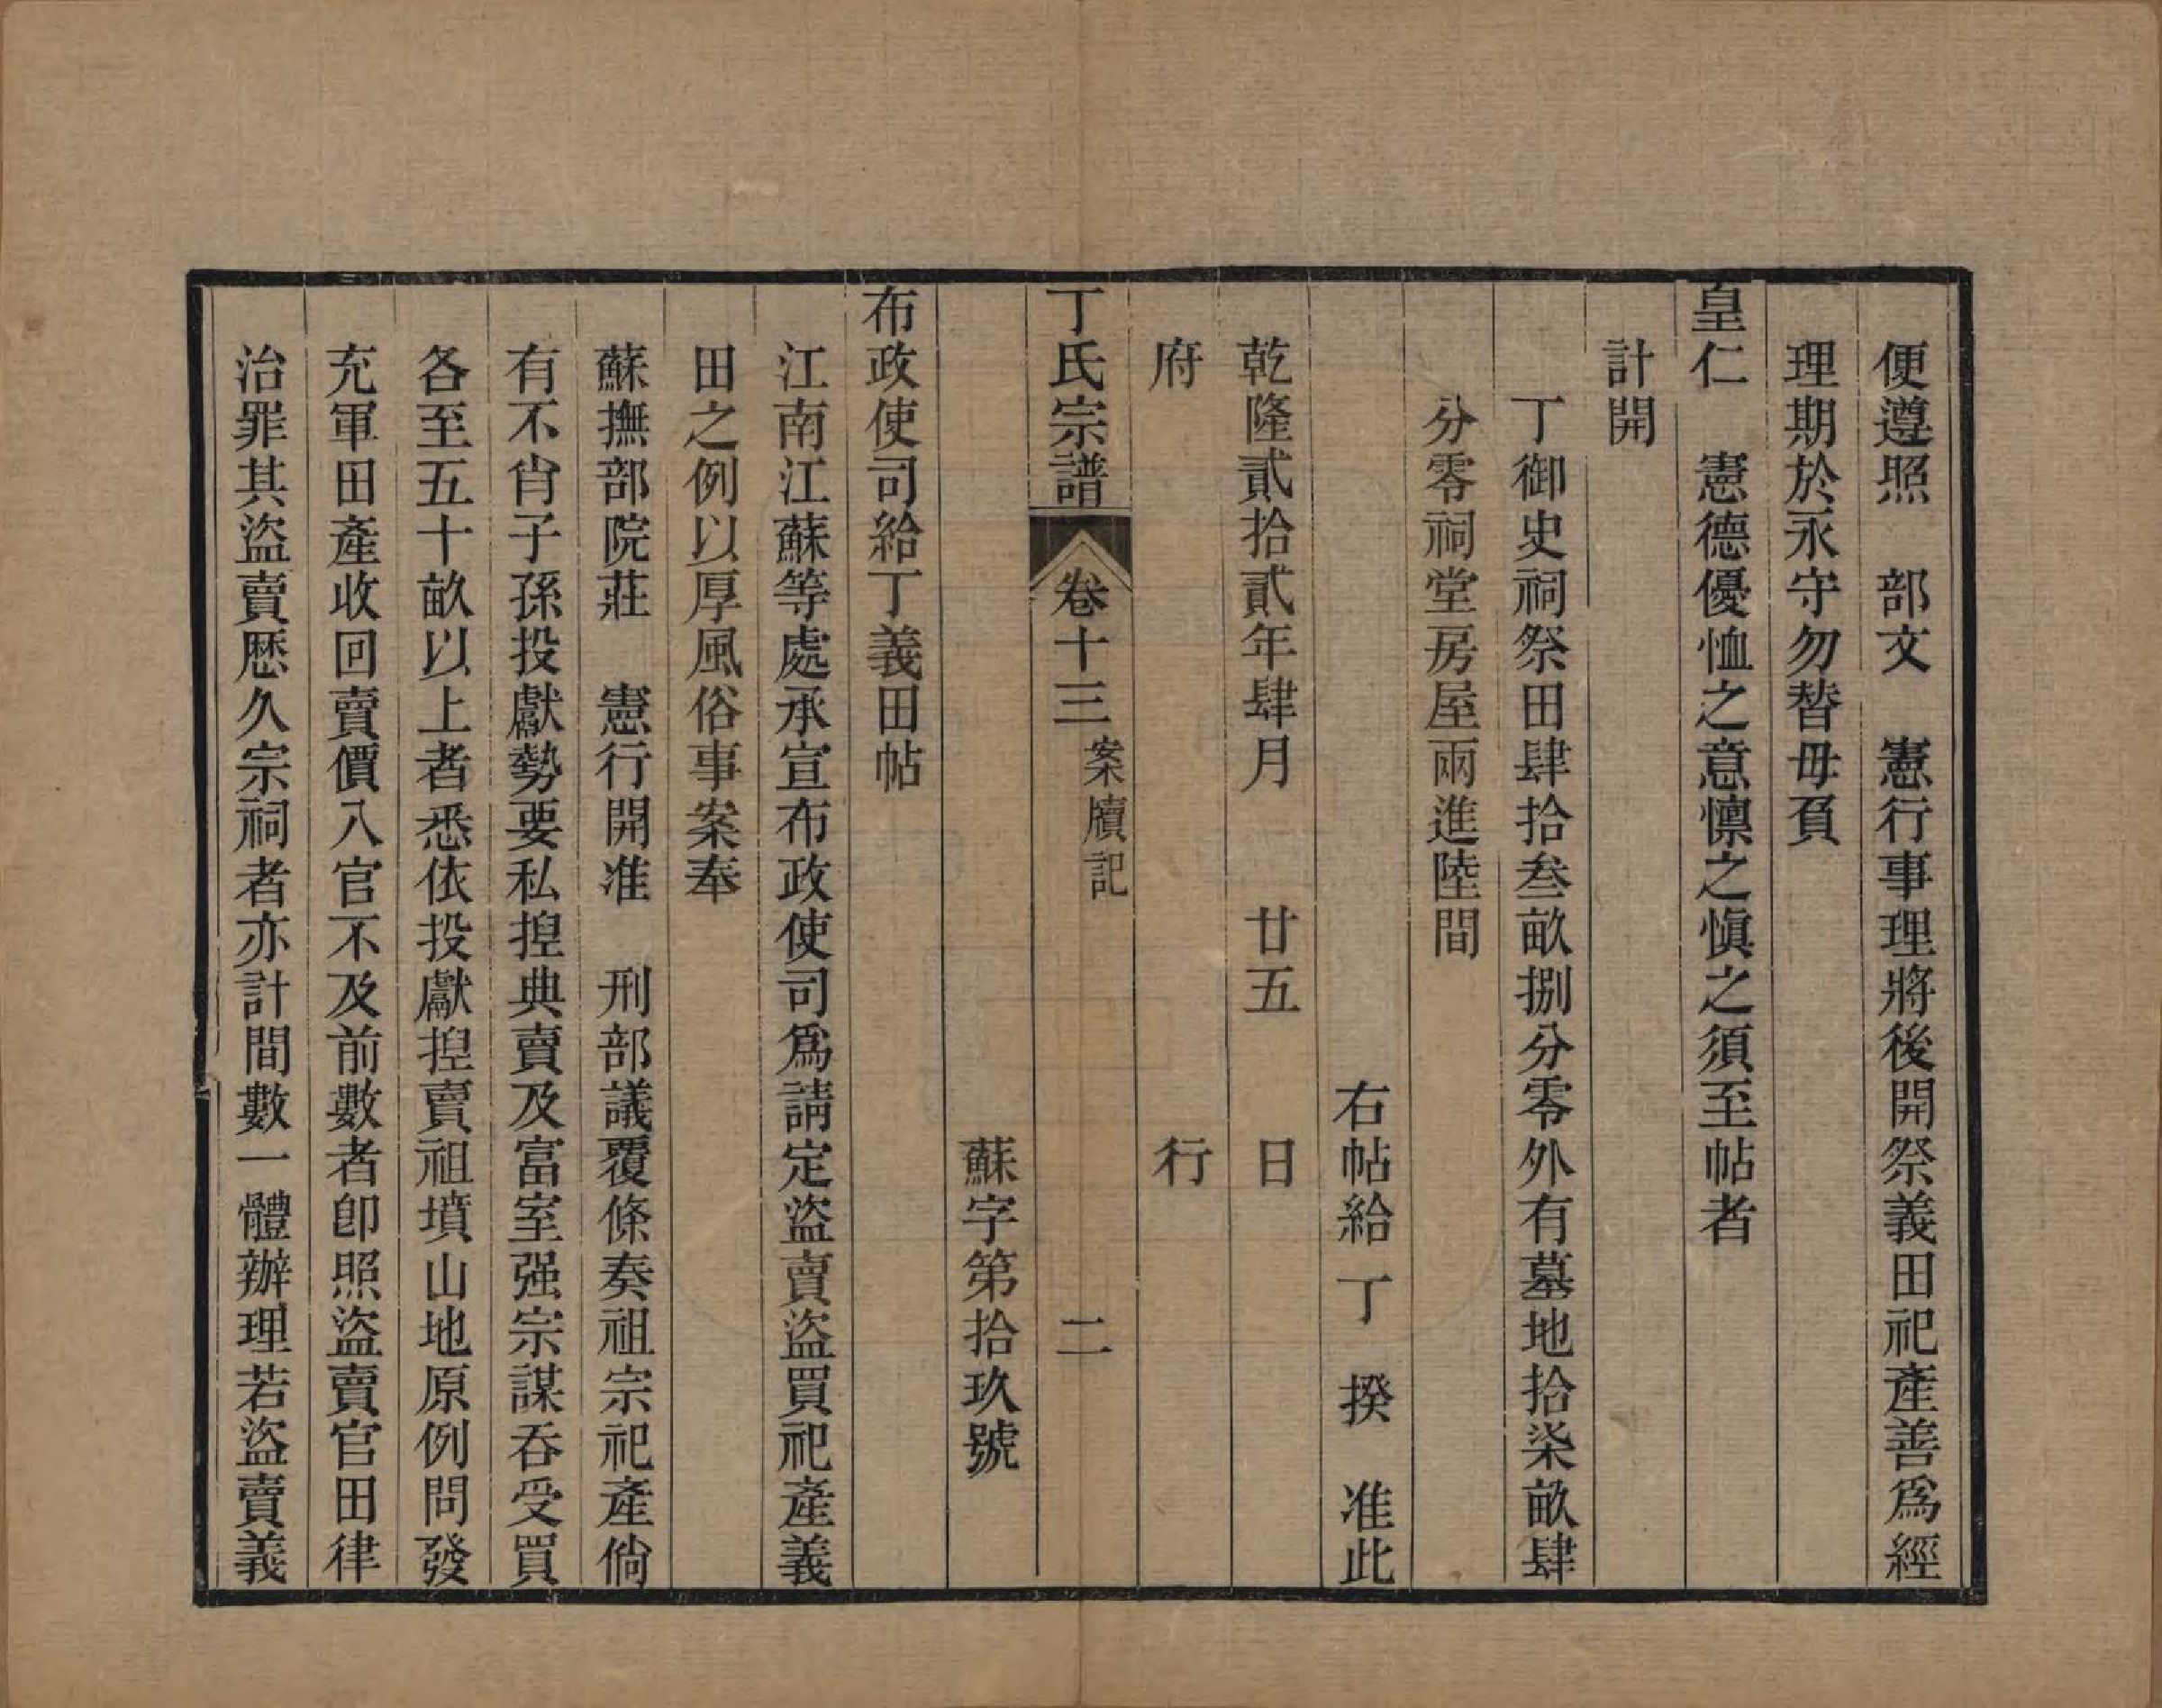 便遵照　部文　憲行事理將後開祭義田祀產善爲經
理期於永守勿替毋負
皇仁　憲德優恤之意懍之愼之須至帖者
計開
丁御史祠祭田肆拾叁畝捌分零外有墓地拾柒畝肆
分零祠堂房屋兩進陸間
右帖給　丁　揆　准此
乾隆貳拾貳年肆月　廿五　日
府　行
丁氏宗譜　卷十三　案牘記　二
蘇字第拾玖號
布政使司給丁義田帖
江南江蘇等處承宣布政使司爲請定盜賣盜買祀產義
田之例以厚風俗事案奉
蘇撫部院莊　憲行開准　刑部議覆條奏祖宗祀產倘
有不肖子孫投獻勢要私揑典賣及富室强宗謀吞受買
各至五十畝以上者悉依投獻揑賣祖墳山地原例問發
充軍田產收回賣價入官不及前數者卽照盜賣官田律
治罪其盜賣歷久宗祠者亦計間數一體辦理若盜賣義